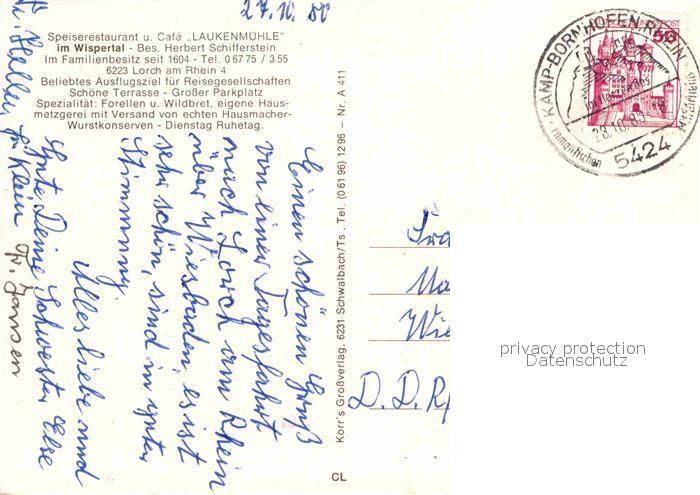 27.10.80
Speiserestaurant u. Café „LAUKENMÜHLE"
im Wispertal - Bes. Herbert Schifferstein
Im Familienbesitz seit 1604 - Tel. 0 67 75 / 3 55
6223 Lorch am Rhein 4
Beliebtes Ausflugsziel für Reisegesellschaften
Schöne Terrasse - Großer Parkplatz
Spezialität: Forellen u. Wildbret, eigene Haus-
metzgerei mit Versand von echten Hausmacher-
Wurstkonserven - Dienstag Ruhetag.
Einen schönen Gruß
von einer Tagesfahrt
nach Lorch am Rhein
über Wiesbaden, es ist
sehr schön, sind in guter
Stimmung.
Alles liebe und
Gute Deine Schwester Else
Klein Fr. Jansen
Korr's Großverlag, 6231 Schwalbach/Ts., Tel. (0 61 96) 12 96 – Nr. A 411
CL
KAMP-BORNHOFEN RHEIN
romantischen
28.10.80
5424
50
Fra
Ma
Wie
D.D.R
privacy protection
Datenschutz